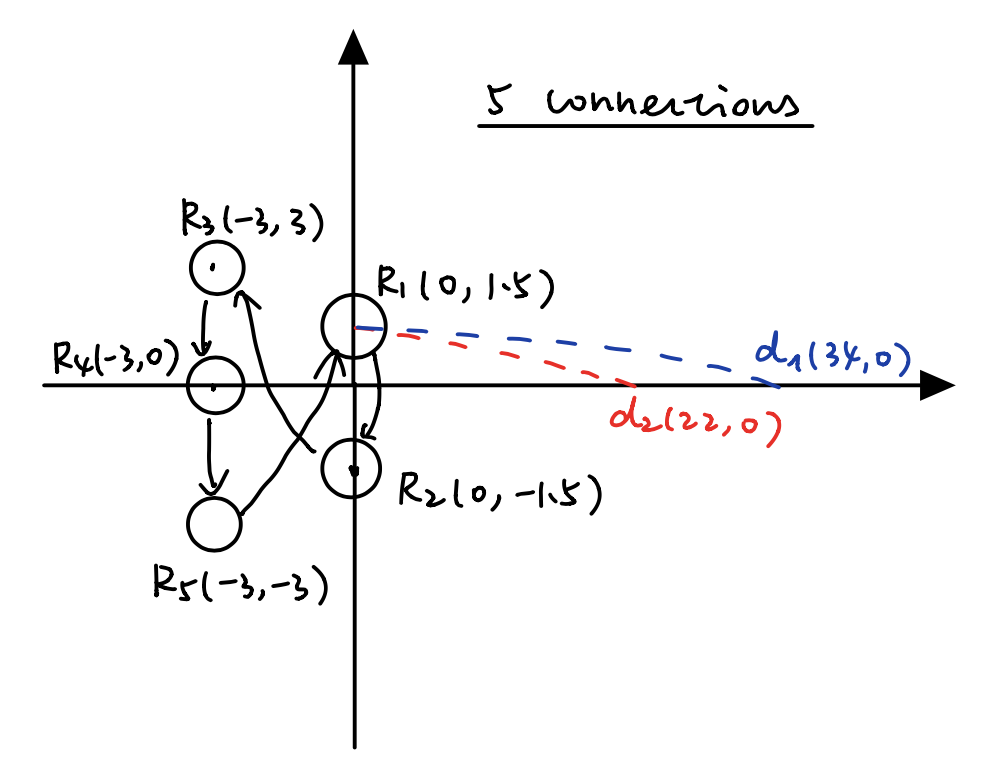 5 connections
R3(-3, 3)
R1(0, 1.5)
R4(-3, 0)
d1(34, 0)
d2(22, 0)
R2(0, -1.5)
R5(-3, -3)